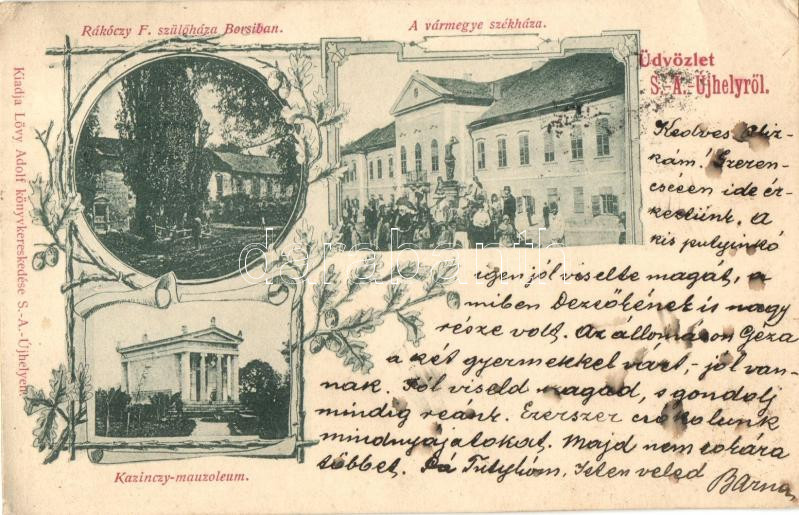 Rákóczy F. szülőháza Borsiban.
A vármegye székháza.
Üdvözlet
S.-A.-Újhelyről.
Kiadja Lövy Adolf könyvkereskedése S.-A.-Újhelyen.
Kazinczy-mauzoleum.
Kedves
kám! Szeren-
csésen ide ér-
keztünk. A
kis pulyinkó
igen jól viselte magát, a
miben Dezsőkének is nagy
része volt. Az állomáson Géza
a két gyermekkel várt, - jól van-
nak. Jól viseld magad, s gondolj
mindig reánk. Ezerszer csókolunk
mindnyájatokat. Majd nem sokára
többet. Pá Isten veled
Barna
darabanth.com